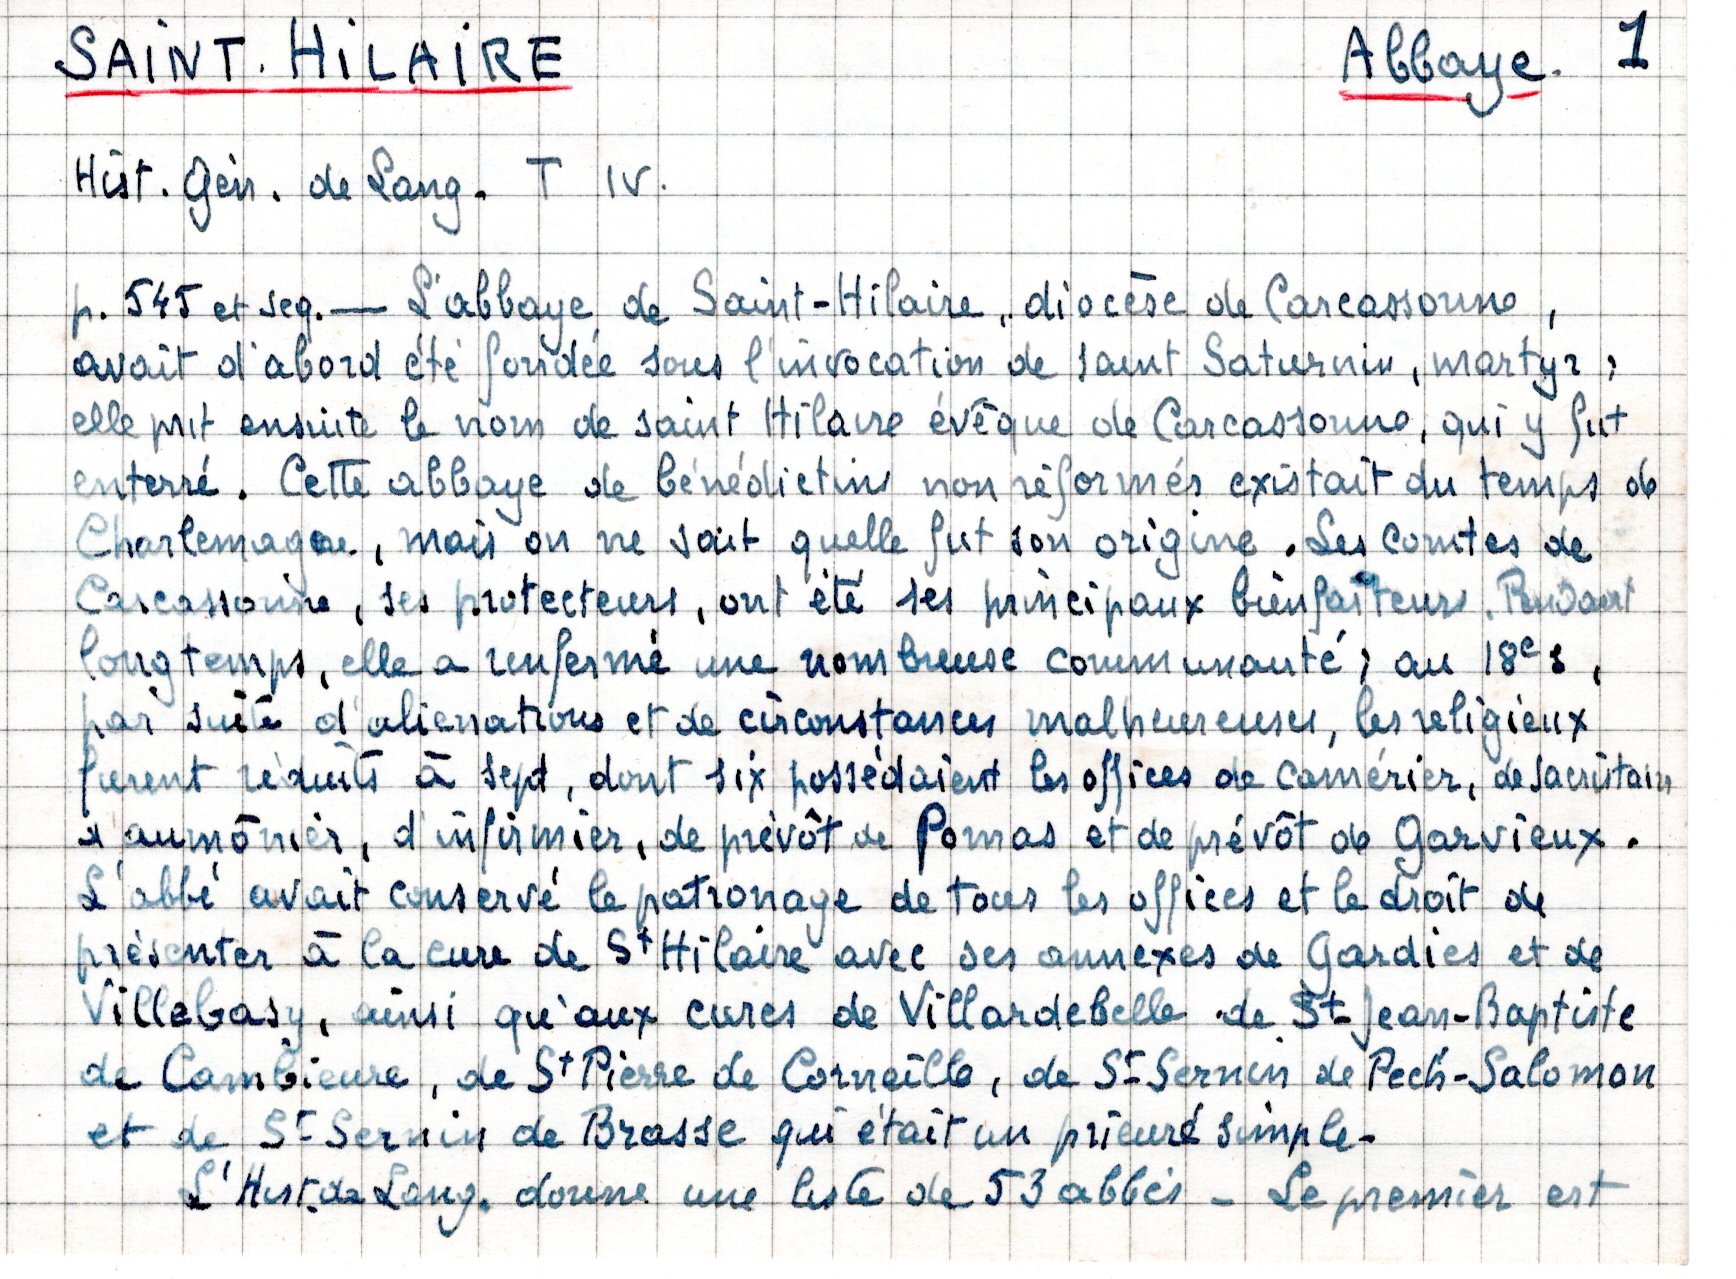 SAINT. HILAIRE Abbaye. 1
Hist. Gén. de Lang. T IV.
p. 545 et seq. — L'abbaye de Saint-Hilaire, diocèse de Carcassonne,
avait d'abord été fondée sous l'invocation de saint Saturnin, martyr ;
elle prit ensuite le nom de saint Hilaire évêque de Carcassonne, qui y fut
enterré. Cette abbaye de bénédictins non réformés existait du temps de
Charlemagne, mais on ne sait quelle fut son origine. Les comtes de
Carcassonne, ses protecteurs, ont été ses principaux bienfaiteurs. Pendant
longtemps, elle a renfermé une nombreuse communauté ; au 18e s,
par suite d'alienations et de circonstances malheureuses, les religieux
furent réduits à sept, dont six possédaient les offices de camérier, de sacristain
d'aumônier, d'infirmier, de prévôt de Pomas et de prévôt de Garvieux.
L'abbé avait conservé le patronage de tous les offices et le droit de
présenter à la cure de St Hilaire avec ses annexes de Gardies et de
Villebasy, ainsi qu'aux cures de Villardebelle de St-Jean-Baptiste
de Cambieure, de St Pierre de Corneille, de St-Sernin de Pech-Salomon
et de St-Sernin de Brasse qui était un prieuré simple-
L'Hist. de Lang. donne une liste de 53 abbés - Le premier est